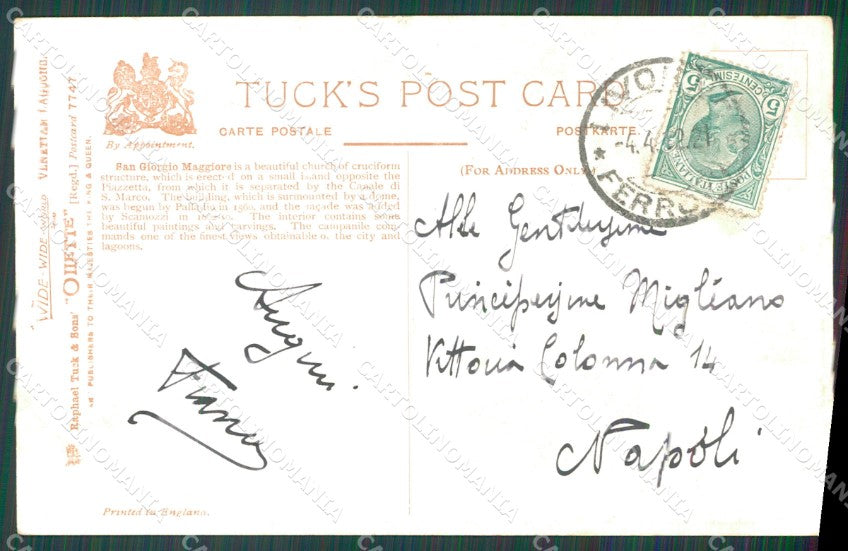 TUCK'S POST CARD
By Appointment.
CARTE POSTALE
POSTKARTE.
(FOR ADDRESS ONLY.)
San Giorgio Maggiore is a beautiful church of cruciform
structure, which is erect-d on a small island opposite the
Piazzetta, from which it is separated by the Canale di
S. Marco. The building, which is surmounted by a dome,
was begun by Palladio in 1560, and the façade was added
by Scamozzi in The interior contains some
beautiful paintings and carvings. The campanile com-
mands one of the finest views obtainable o. the city and
lagoons.
WIDE-WIDE-WORLD
VENETIAN LAGOONS.
Raphael Tuck & Sons' "OILETTE" [Regd.] Postcard 7747
PUBLISHERS TO THEIR MAJESTIES THE KING & QUEEN.
Auguri
Franco
Alle Gentilissime
Principessine Migliano
Vittoria Colonna 14
Napoli
FERROVIA
5 CENTESIMI 5
POSTE ITALIANE
Printed in England.
CARTOLINOMANIA